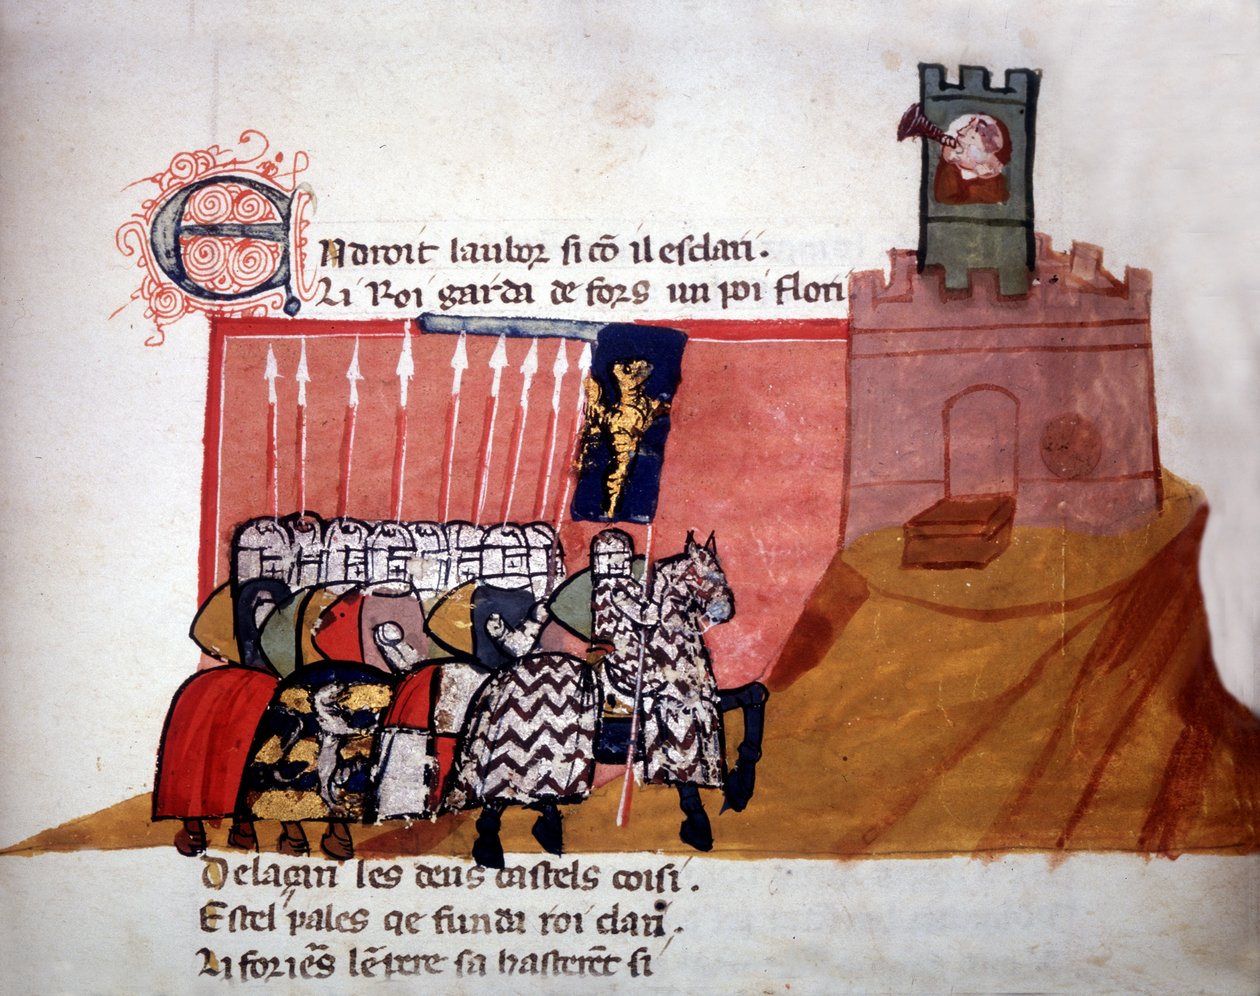 EN droit laubor si cō il esclari.
Li Roi garda de fors un poi flori
Delaçin les deus castels coisi.
Estel pales qe funda roi clari.
Li foriēs lē